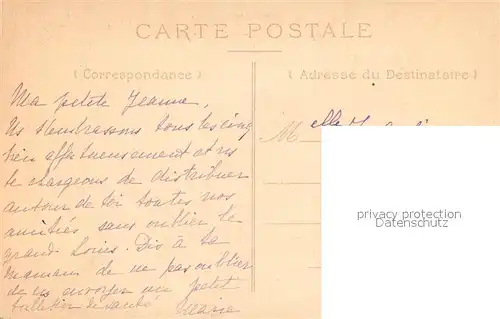 CARTE POSTALE
( Correspondance )
( Adresse du Destinataire )
Ma petite Jeanne,
Ns t'embrassons tous les cinq
bien affectueusement et ns
te chargeons de distribuer
autour de toi toutes nos
amitiés sans oublier le
grand Louis. Dis à ta
maman de ne pas oublier
de ns envoyer un petit
bulletin de santé Marie
Melle
privacy protection
Datenschutz